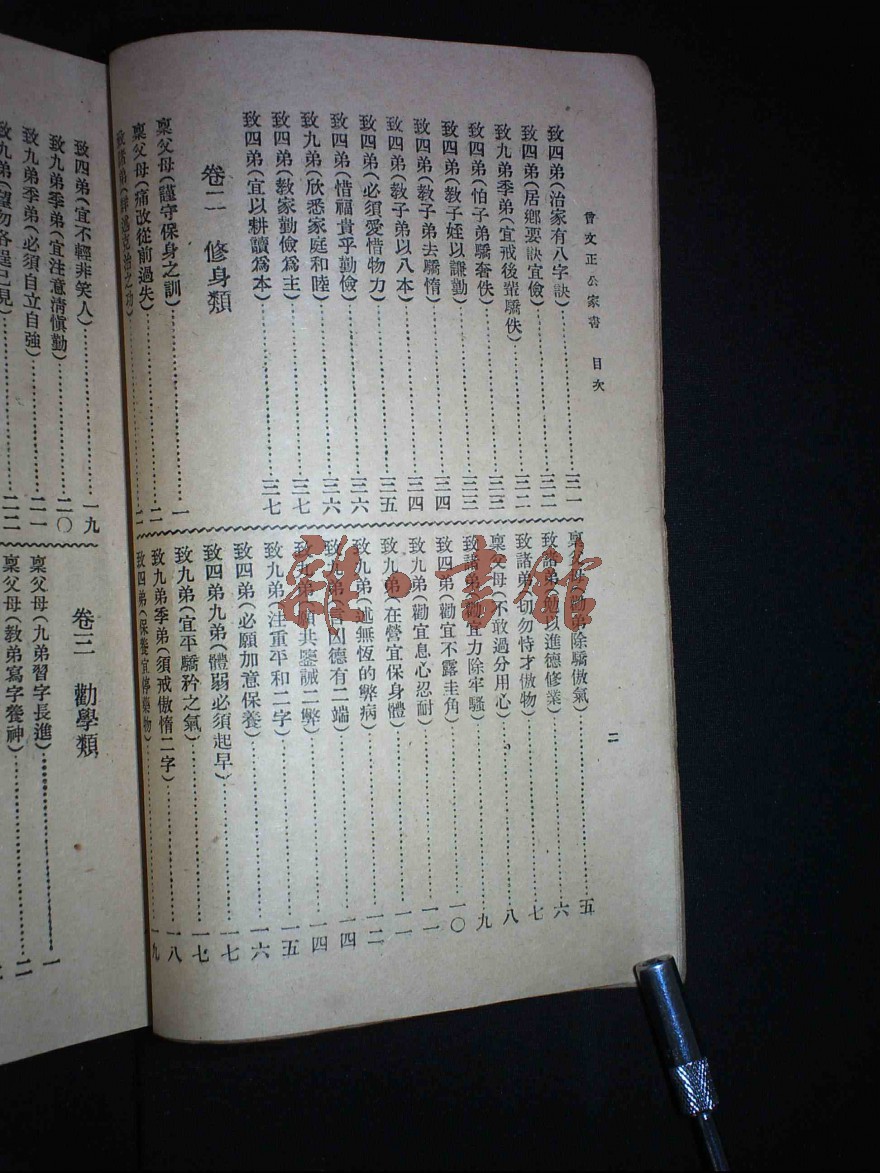 曾文正公家書 目次
二
致四弟(治家有八字訣)……三一
致四弟(居鄉要訣宜儉)……三二
致九弟季弟(宜戒後輩驕佚)……三二
致四弟(怕子弟驕奢佚)……三三
致四弟(教子姪以謙勤)……三三
致四弟(教子弟去驕惰)……三四
致四弟(教子弟以八本)……三四
致四弟(必須愛惜物力)……三五
致四弟(惜福貴乎勤儉)……三六
致九弟(欣悉家庭和睦)……三六
致四弟(教家勤儉爲主)……三七
致四弟(宜以耕讀爲本)……三七
卷二 修身類
稟父母(謹守保身之訓)……一
稟父母(痛改從前過失)……二
致諸弟(
克治之功)……二
稟父母(勸弟除驕傲氣)……五
致諸弟(勉以進德修業)……六
致諸弟(切勿恃才傲物)……七
稟父母(不敢過分用心)……八
致諸弟(勸宜力除牢騷)……九
致四弟(勸宜不露圭角)……一〇
致九弟(勸宜息心忍耐)……一一
致九弟(在營宜保身體)……一一
致九弟(述無恆的弊病)……一二
致九弟(言凶德有二端)……一四
致九弟(願共鑒誡二弊)……一四
致九弟(注重平和二字)……一五
致四弟(必願加意保養)……一六
致四弟九弟(體弱必須起早)……一七
致九弟(宜平驕矜之氣)……一七
致九弟季弟(須戒傲惰二字)……一八
致四弟(保養宜停藥物)……一九
致四弟(宜不輕非笑人)……一九
致九弟季弟(宜注意清慎勤)……二〇
致九弟季弟(必須自立自強)……二一
致九弟(望勿各逞己見)……二二
卷三 勸學類
稟父母(九弟習字長進)……一
稟父母(教弟寫字養神)……二
雜·書館